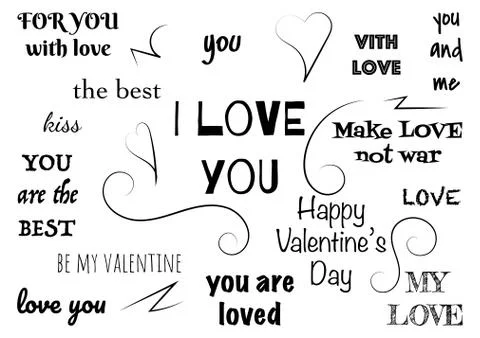 FOR YOU
with love
you
VITH
LOVE
you
and
me
the best
kiss
I LOVE
YOU
Make LOVE
not war
YOU
are the
BEST
LOVE
Happy
Valentine's
Day
BE MY VALENTINE
love you
you are
loved
MY
LOVE